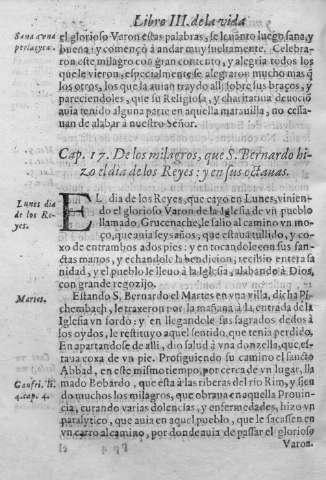 Libro III. de la vida
Sana a vna
perlatyca.
el glorioso Varon estas palabras, se leuanto luego sana, y
buena: y començò à andar muy sueltamente. Celebra-
ron este milagro con gran contento, y alegria todos los
que le vieron, especialmente se alegraron mucho mas q̃
los otros, los que la auian traydo alli sobre sus braços, y
pareciendoles, que su Religiosa, y charitatiua deuociõ
auia tenido alguna parte en aquella marauilla, no cessa-
uan de alabar à nuestro Señor.
Cap. 17. De los milagros, que S. Bernardo hi-
zo el dia de los Reyes: y en sus octauas.
Lunes dia
de los Re-
yes.
EL dia de los Reyes, que cayo en Lunes, vinien-
do el glorioso Varon de la Iglesia de vn pueblo
llamado Gruccnache, le salio al camino vn mo-
ço, que auia seys años, que estaua tullido, y co-
xo de entrambos ados pies: y en tocandole con sus san-
ctas manos, y echandole la bendicion, recibio entera sa
nidad, y el pueblo le lleuo à la Iglesia, alabando à Dios,
con grande regozijo.
Martes.
Estando S. Bernardo el Martes en vna villa, dicha Pi-
chembach, le traxeron por la mañana à la entrada de la
Iglesia vn sordo: y en llegandole sus sagrados dedos à
los oydos, le restituyo aquel sentido, que tenia perdido.
En apartandose de alli, dio salud à vna donzella, que es-
taua coxa de vn pie. Prosiguiendo su camino el sancto
Abbad, en este mismo tiempo, por cerca de vn lugar, lla
mado Bebardo, que està à las riberas del rio Rim, y sien
Gaufri. li.
4. cap. 4.
do muchos los milagros, que obraua en aquella Prouin-
cia, curando varias dolencias, y enfermedades, hizo vn
paralytico, que auia en aquel pueblo, que le sacassen en
vn carro al camino, por donde auia de passar el glorioso
Varon.